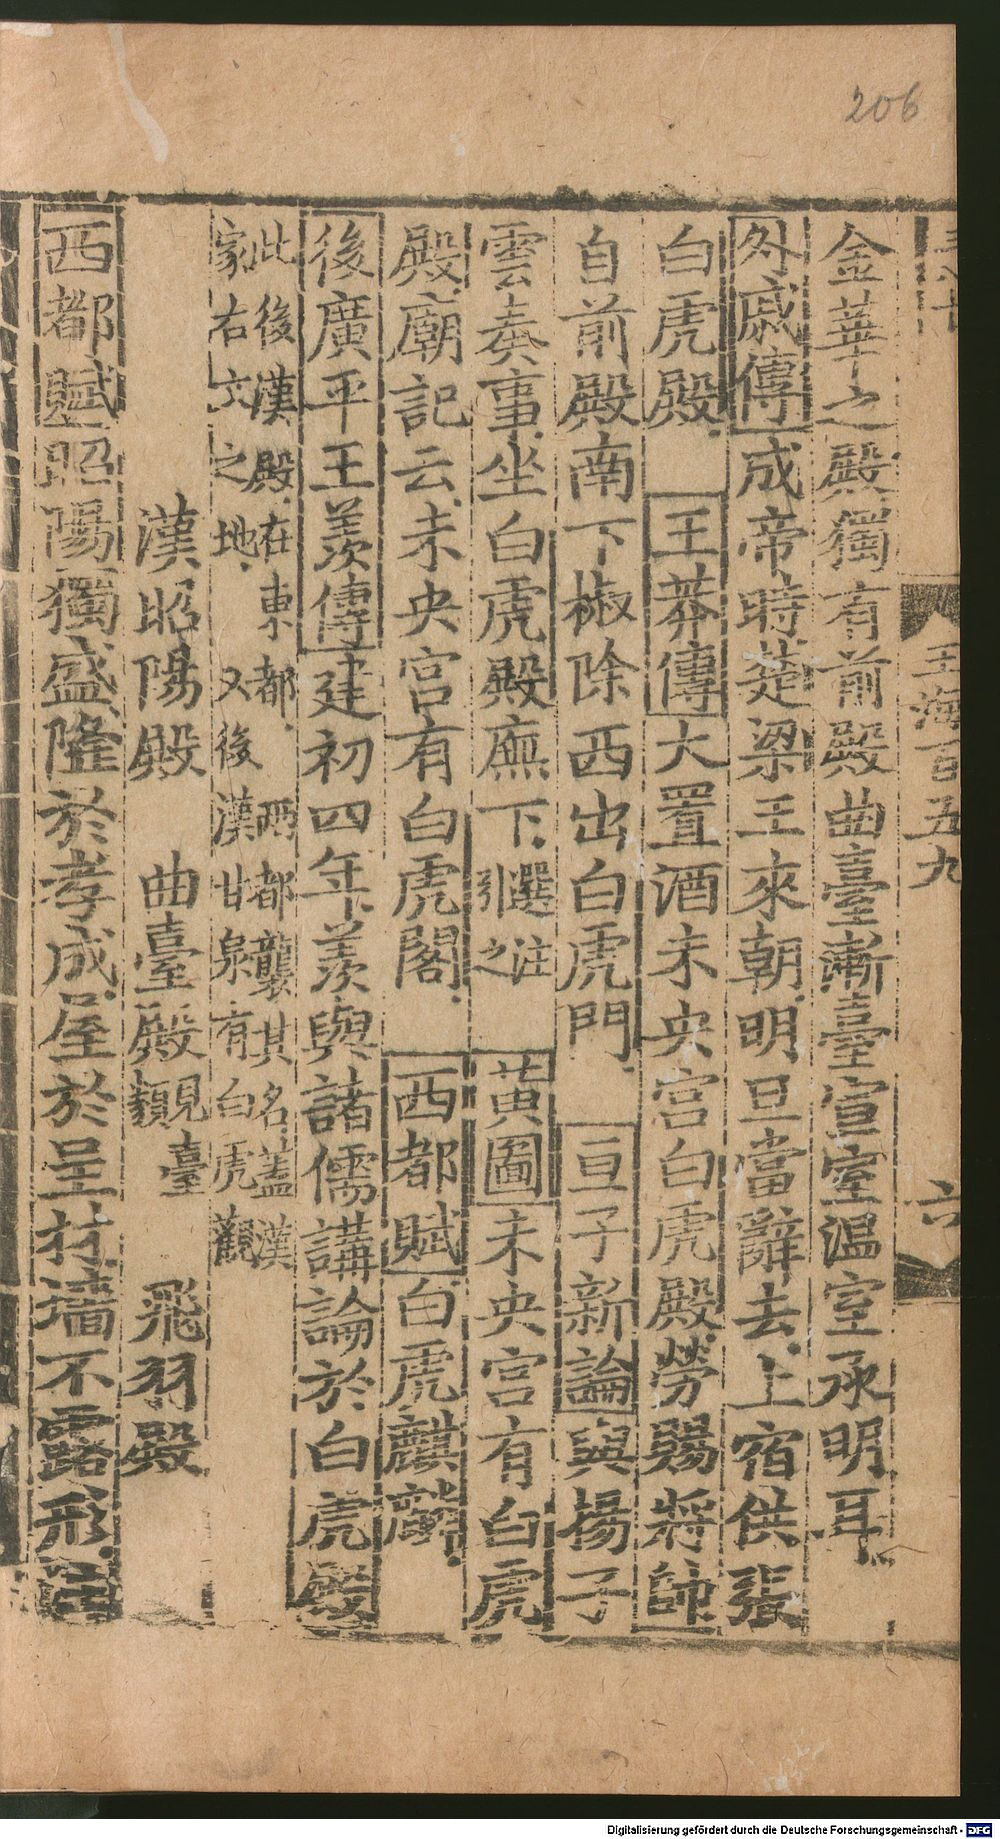 206
玉海百五九
六
金華之殿獨有前殿曲臺漸臺宣室溫室承明耳
外戚傳成帝時楚梁王來朝明旦當辭去上宿供張
白虎殿 王莽傳大置酒未央宮白虎殿勞賜將帥
自前殿南下椒除西出白虎門 亘子新論與揚子
雲奏事坐白虎殿廡下選注引之 黃圖未央宮有白虎
殿廟記云未央宮有白虎閣 西都賦白虎麒麟
後廣平王羨傳建初四年羨與諸儒講論於白虎殿
此後漢殿在東都西都襲其名蓋漢
家右六之地又後漢甘泉有白虎觀
漢昭陽殿 曲臺殿見臺類 飛羽殿
西都賦昭陽獨盛隆於孝成屋於呈材墻不露形
Digitalisierung gefördert durch die Deutsche Forschungsgemeinschaft - DFG